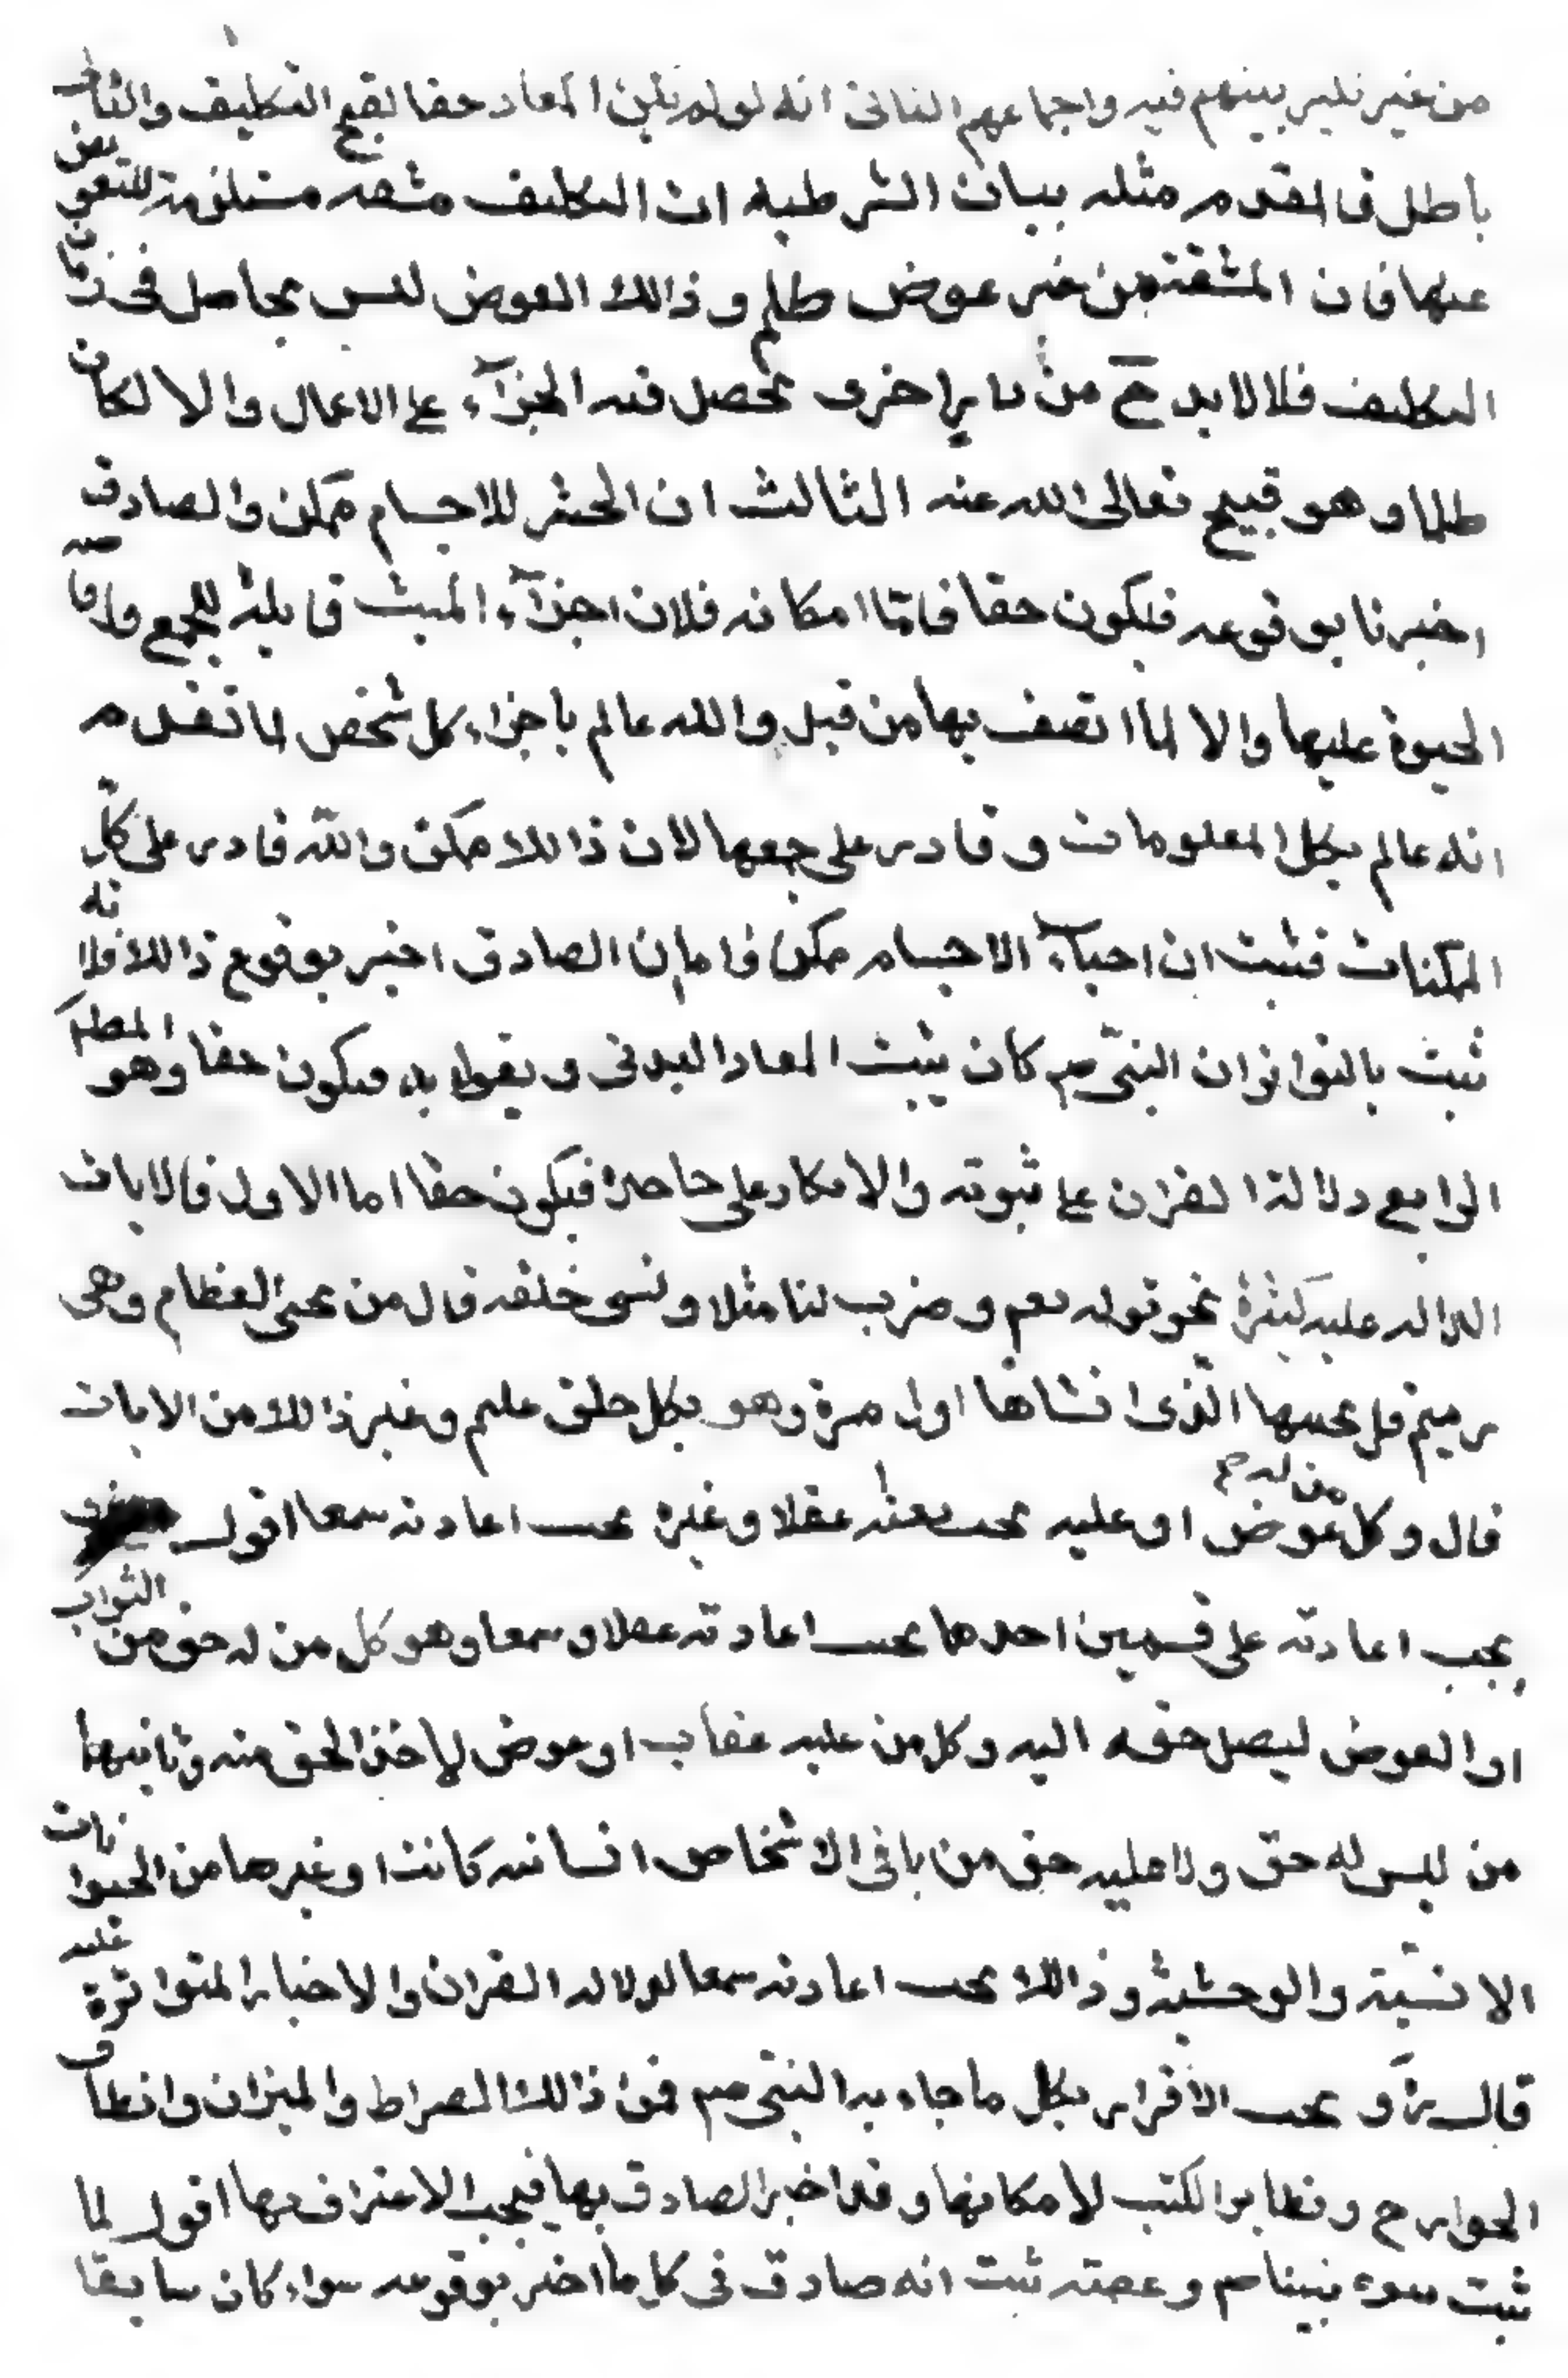 من غير نكير بينهم فيه واجماعهم الثانى انه لو لم يكن المعاد حقا لقبح التكليف والتالى
باطل فالمقدم مثله بيان الشرطيه ان التكليف مشقه مستلزمة للتعويض
عنها فان المشقة من غير عوض ظلم وذالك العوض ليس بحاصل فى زمان
التكليف فلا لا بد ح من دار اخرى يحصل فيه الجزآء على الاعمال والا لكان
ظلما وهو قبيح تعالى الله عنه الثالث ان الحشر للاجسام ممكن والصادق
اخبرنا بوقوعه فيكون حقا فاما امكانه فلان اجزآء الميت قابلة للجمع وافاضة
الحيوة عليها والا لما اتصف بها من قبل والله عالم باجزاء كل شخص لما تقدم
انه عالم بكل المعلومات وقادر على جمعها لان ذالك ممكن والله قادر على كل
الممكنات فثبت ان احيآء الاجسام ممكن فاما ان الصادق اخبر بوقوع ذالك فلانه
ثبت بالتواتر ان النبى صم كان يثبت المعاد البدنى ويقول به فيكون حقا وهو المطلوب
الرابع دلالة القران على ثبوته والانكار على جاحده فيكون حقا اما الاول فالايات
الدالة عليه كثيرة نحو قوله تعم وضرب لنا مثلا ونسى خلقه قال من يحيى العظام وهى
رميم قل يحييها الذى انشاها اول مرة وهو بكل خلق عليم وغير ذالك من الايات
قال وكل من له عوض او عليه يجب بعثه عقلا وغيره يجب اعادته سمعا اقول
يجب اعادته على قسمين احدهما يجب اعادته عقلا وسمعا وهو كل من له حق من الثواب
او العوض ليصل حقه اليه وكل من عليه عقاب او عوض لاخذ الحق منه وثانيهما
من ليس له حق ولا عليه حق من باقى الاشخاص انسانيه كانت او غيرها من الحيوانات
الانسية والوحشية وذالك يجب اعادته سمعا لدلاله القران والاخبار المتواترة عليه
قال ره ويجب الاقرار بكل ما جاء به النبى صم فمن ذالك الصراط والميزان وانطاق
الجوارح وتطاير الكتب لامكانها وقد اخبر الصادق بها فيجب الاعتراف بها اقول لما
ثبت نبوه نبينا صم وعصمته ثبت انه صادق فى كل ما اخبر بوقوعه سواء كان سابقا